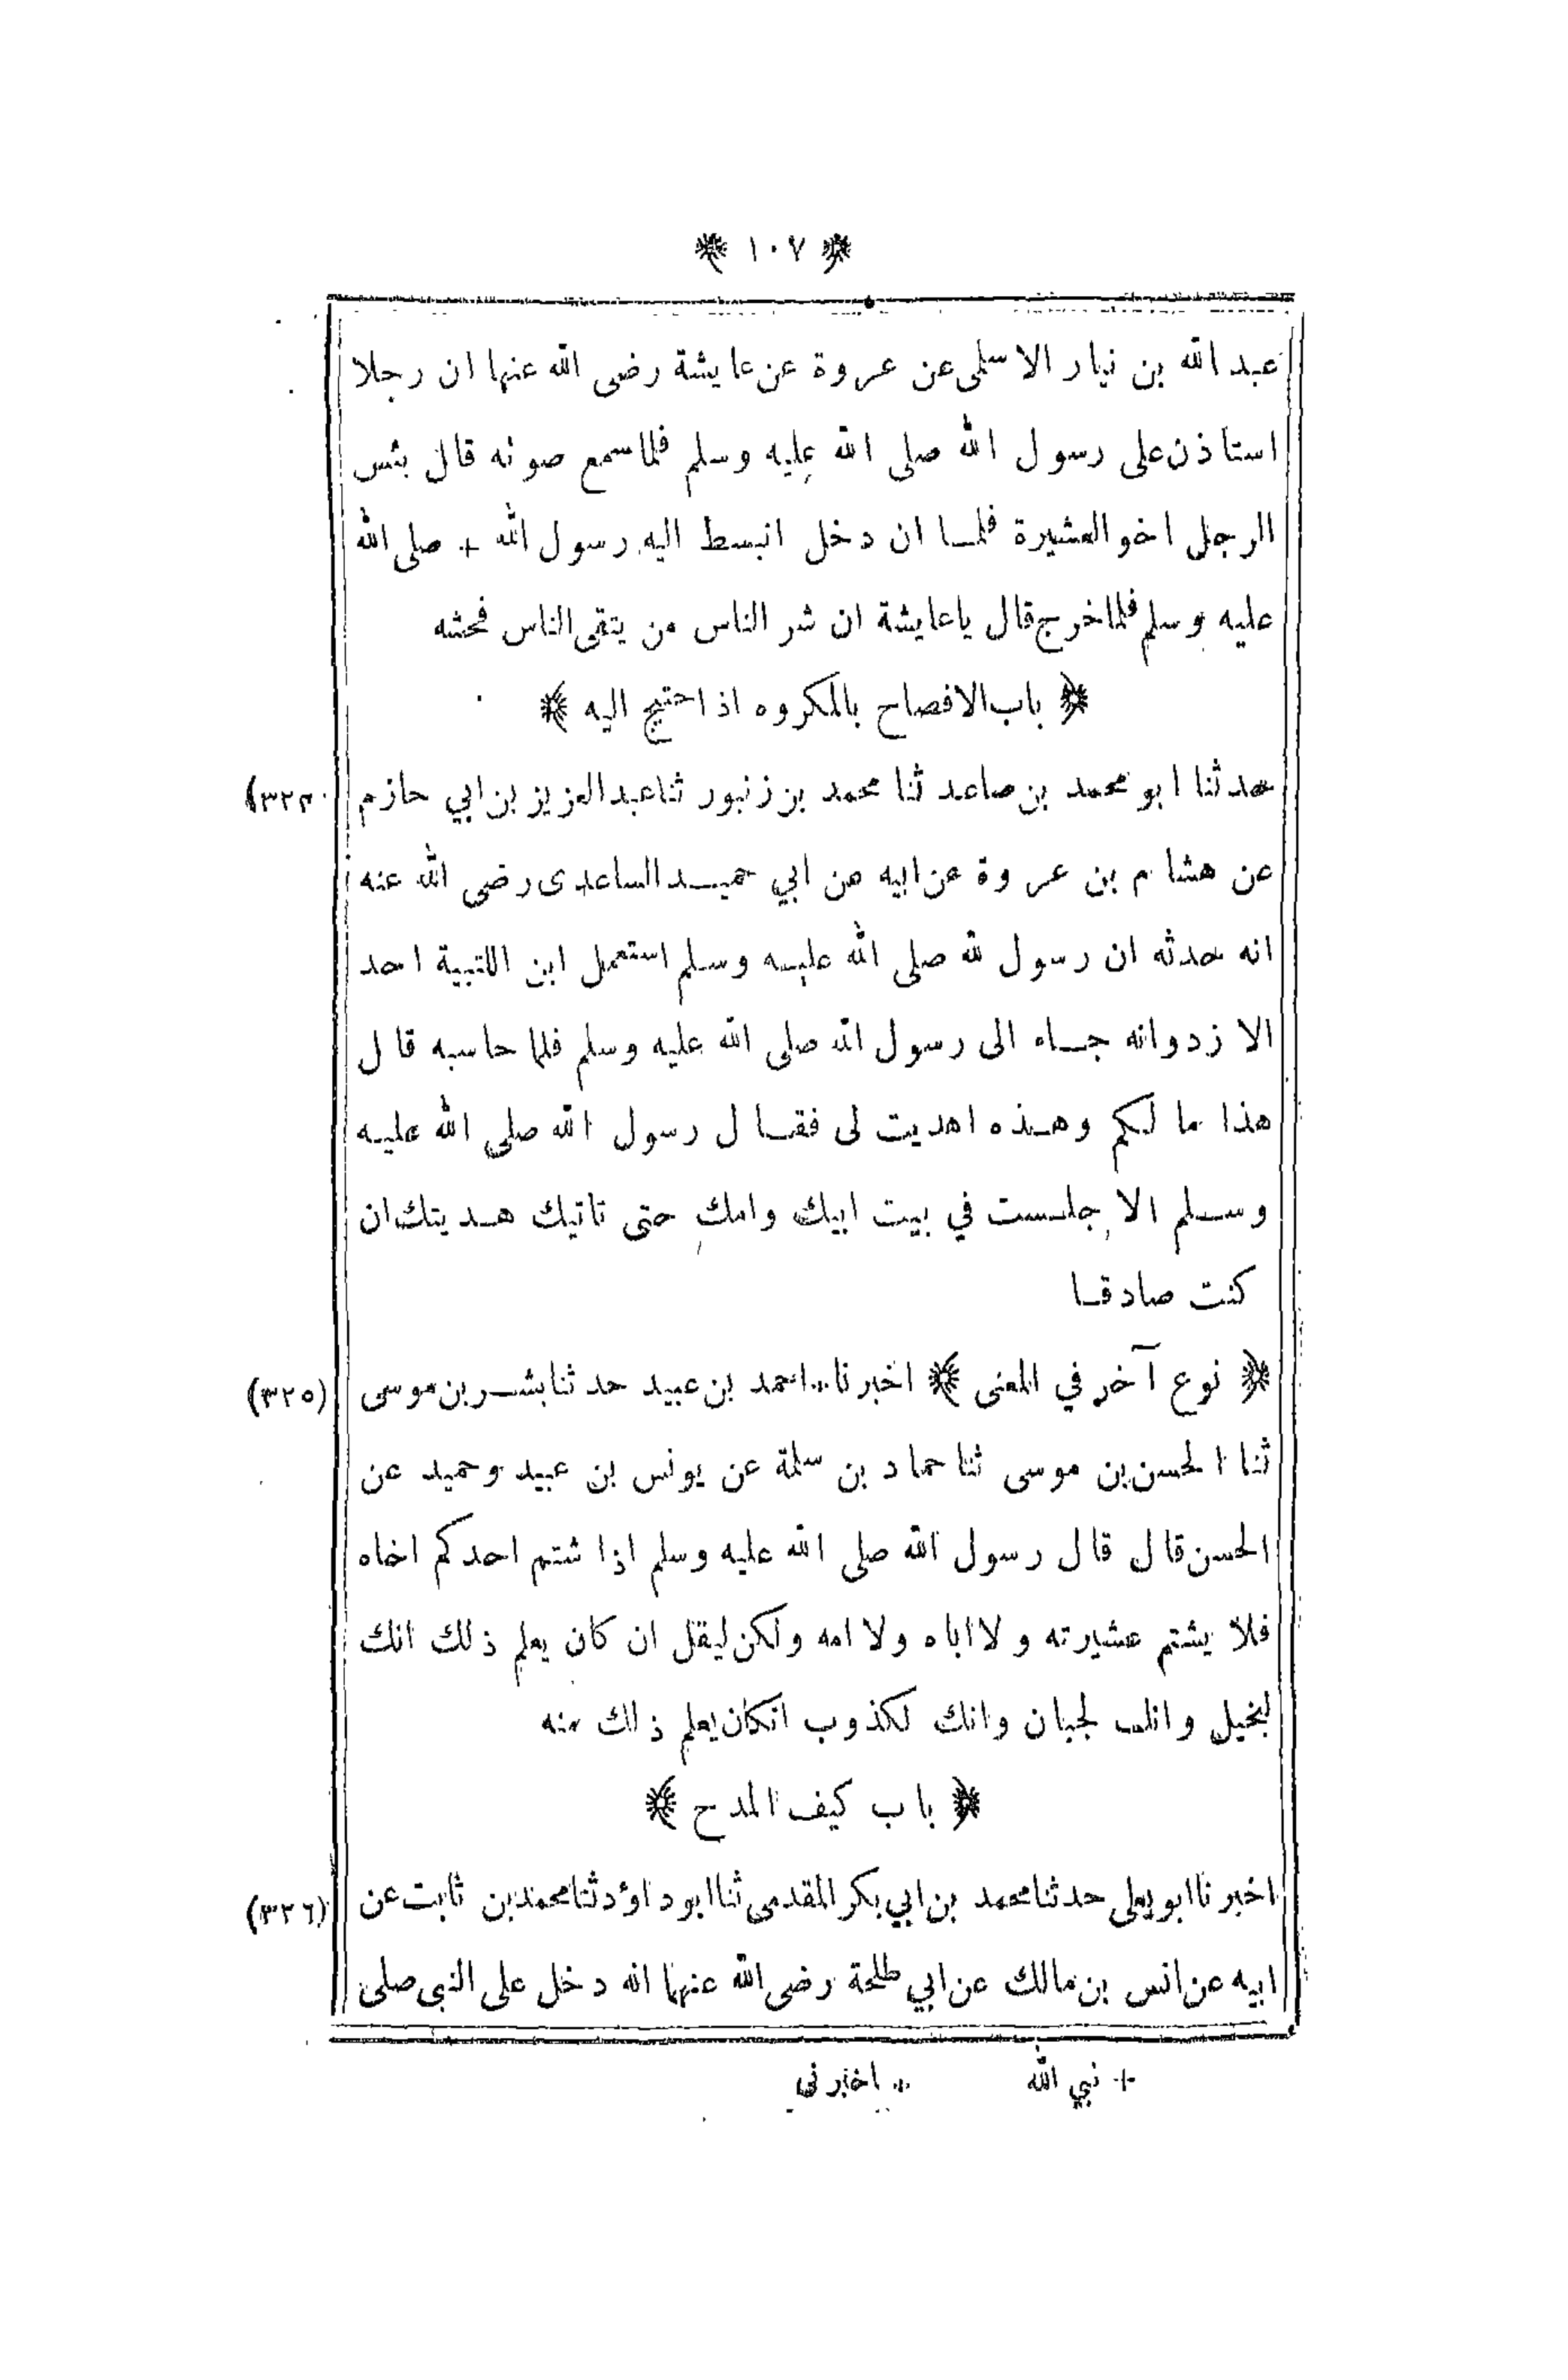 ﴿ ١٠٧ ﴾
عبد الله بن نيار الاسلمى عن عروة عن عايشة رضى الله عنها ان رجلا
استاذن على رسول الله صلى الله عليه وسلم فلما سمع صوته قال بئس
الرجل اخو العشيرة فلما ان دخل انبسط اليه رسول الله + صلى الله
عليه وسلم فلما خرج قال يا عايشة ان شر الناس من يتقى الناس فحشه
﴿ باب الافصاح بالمكروه اذا احتيج اليه ﴾
حدثنا ابو محمد بن صاعد ثنا محمد بن زنبور ثنا عبد العزيز بن ابي حازم
عن هشام بن عروة عن ابيه عن ابي حميد الساعدى رضى الله عنه
انه حدثه ان رسول لله صلى الله عليه وسلم استعمل ابن اللتبية احد
الازد وانه جاء الى رسول الله صلى الله عليه وسلم فلما حاسبه قال
هذا ما لكم وهذه اهديت لى فقال رسول الله صلى الله عليه
وسلم الا جلست في بيت ابيك وامك حتى تاتيك هديتك ان
كنت صادقا
﴿ نوع آخر في المعنى ﴾ اخبرنا ** احمد بن عبيد حدثنا بشر بن موسى (٣٢٥)
ثنا الحسن بن موسى ثنا حماد بن سلمة عن يونس بن عبيد وحميد عن
الحسن قال قال رسول الله صلى الله عليه وسلم اذا شتم احدكم اخاه
فلا يشتم عشيرته ولا اباه ولا امه ولكن ليقل ان كان يعلم ذلك انك
لبخيل وانك لجبان وانك لكذوب انكان يعلم ذلك منه
﴿ باب كيف المدح ﴾
اخبرنا ابو يعلى حدثنا محمد بن ابي بكر المقدمى ثنا ابو داؤد ثنا محمد بن ثابت عن (٣٢٦)
ابيه عن انس بن مالك عن ابي طلحة رضى الله عنهما انه دخل على النبى صلى
+ نبي الله ** اخبرنى